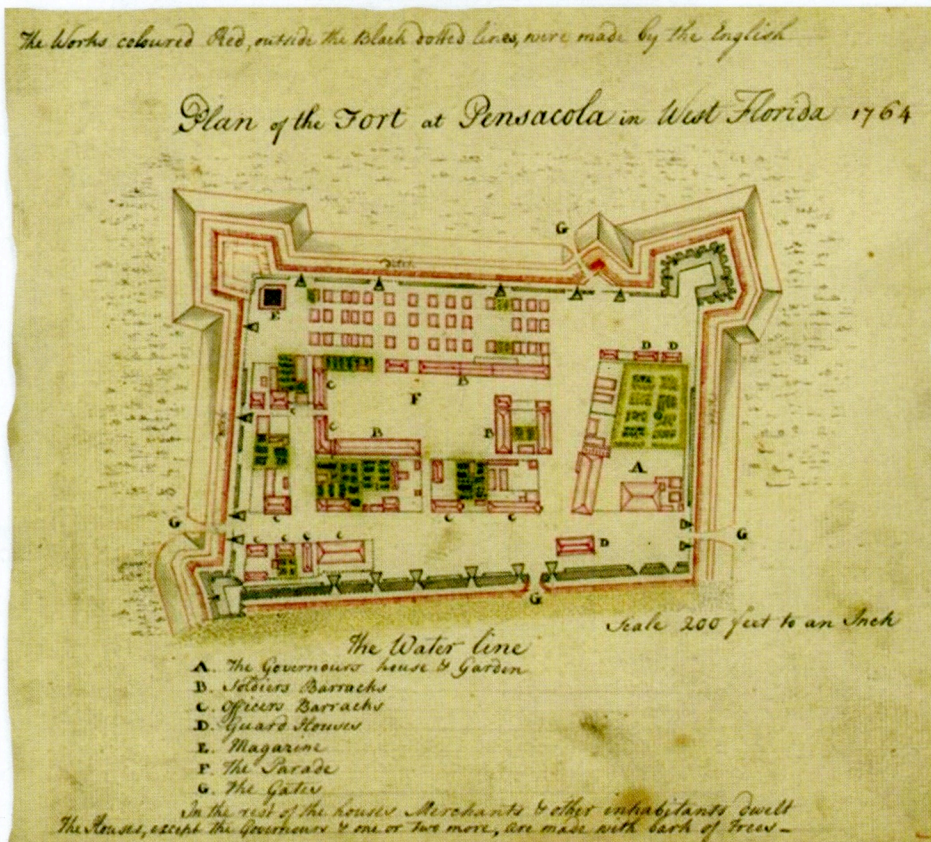 The Works coloured Red, outside the Black dotted lines, were made by the English
Plan of the Fort at Pensacola in West Florida 1764
G
Ditch
E
D D
C
B
F
C
C
B
B
A
C
C
C
G
G
C C C C
D
G
Scale 200 feet to an Inch
The Water line
A. The Governours house & Garden
B. Soldiers Barracks
C. Officers Barracks
D. Guard Houses
E. Magazine
F. The Parade
G. The Gates
In the rest of the houses Merchants & other inhabitants dwelt
The Houses, except the Governours & one or two more, are made with bark of Trees _